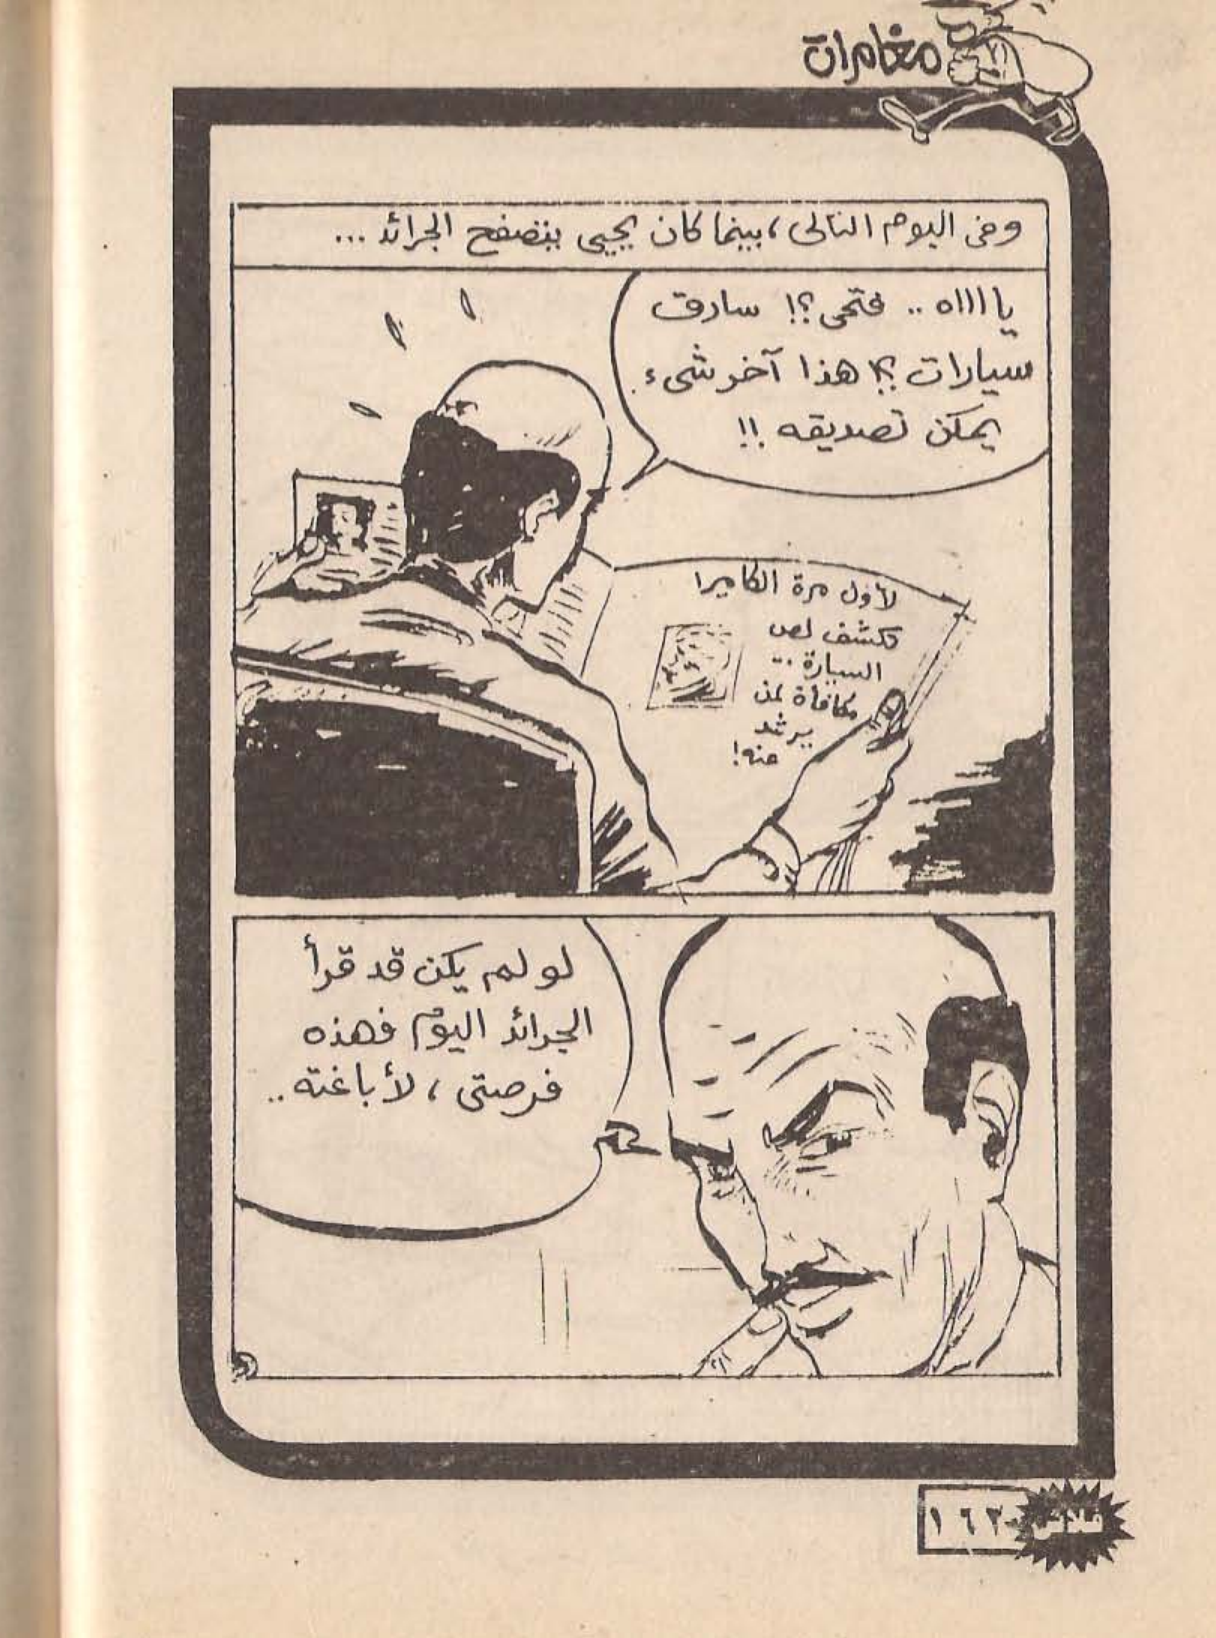 مغامرات
وفى اليوم التالى، بينما كان يحيى يتصفح الجرائد ...
يا اااه .. فتحى؟! سارق
سيارات ؟! هذا آخر شىء
يمكن تصديقه !!
لأول مرة الكاميرا
تكشف لص
السيارة ..
مكافأة لمن
يرشد
عنه!
لو لم يكن قد قرأ
الجرائد اليوم فهذه
فرصتى ، لأباغته ..
فلاش
١٦٣